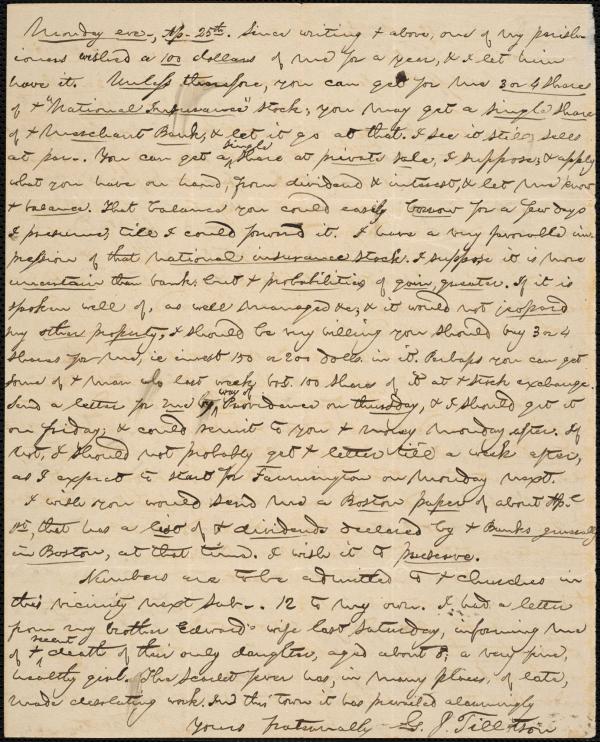 Monday eve-, Ap- 25th. Since writing + above, one of my parish-
ioners wished a 100 dollars of me for a year, & I let him
have it. Unless therefore, you can get for me 3 or 4 share
of + "National Insurance" stock, you may get a single share
of + Merchant Bank, & let it go at that. I see it still sells
at par-. You can get a single share at private sale, I suppose, & apply
what you have on hand, from dividend & interest, & let me know
+ balance. That balance you could easily borrow for a few days
I presume, till I could forward it. I have a very favorable im-
pression of that national insurance stock. I suppose it is more
uncertain than bank, but + probabilities of gain, greater. If it is
spoken well of, as well managed &c, & it would not jeopard
my other property, I should be very willing you should buy 3 or 4
shares for me, ie invest 150 or 200 dolls. in it. Perhaps you can get
some of + man who last week, bot. 100 shares of it at + stock exchange.
Send a letter for me by way of Providence on thursday, & I should get it
on friday; & could remit to you + money monday after. If
not, I should not probably get + letter till a week after,
as I expect to start for Farmington on Monday next.
I wish you would send me a Boston paper of about Ap-
1st, that has a list of + dividends declared by + Banks generally
in Boston, at that time. I wish it to preserve.
Numbers are to be admitted to + churches in
this vicinity next Sab-. 12 to my own. I had a letter
from my brother Edward's wife last Saturday, informing me
of + recent death of their only daughter, aged about 8; a very fine,
healthy girl. The scarlet fever has, in many places, of late,
made desolating work. In this town it has prevailed alarmingly
Yours fraternally - G. J. Tillotson